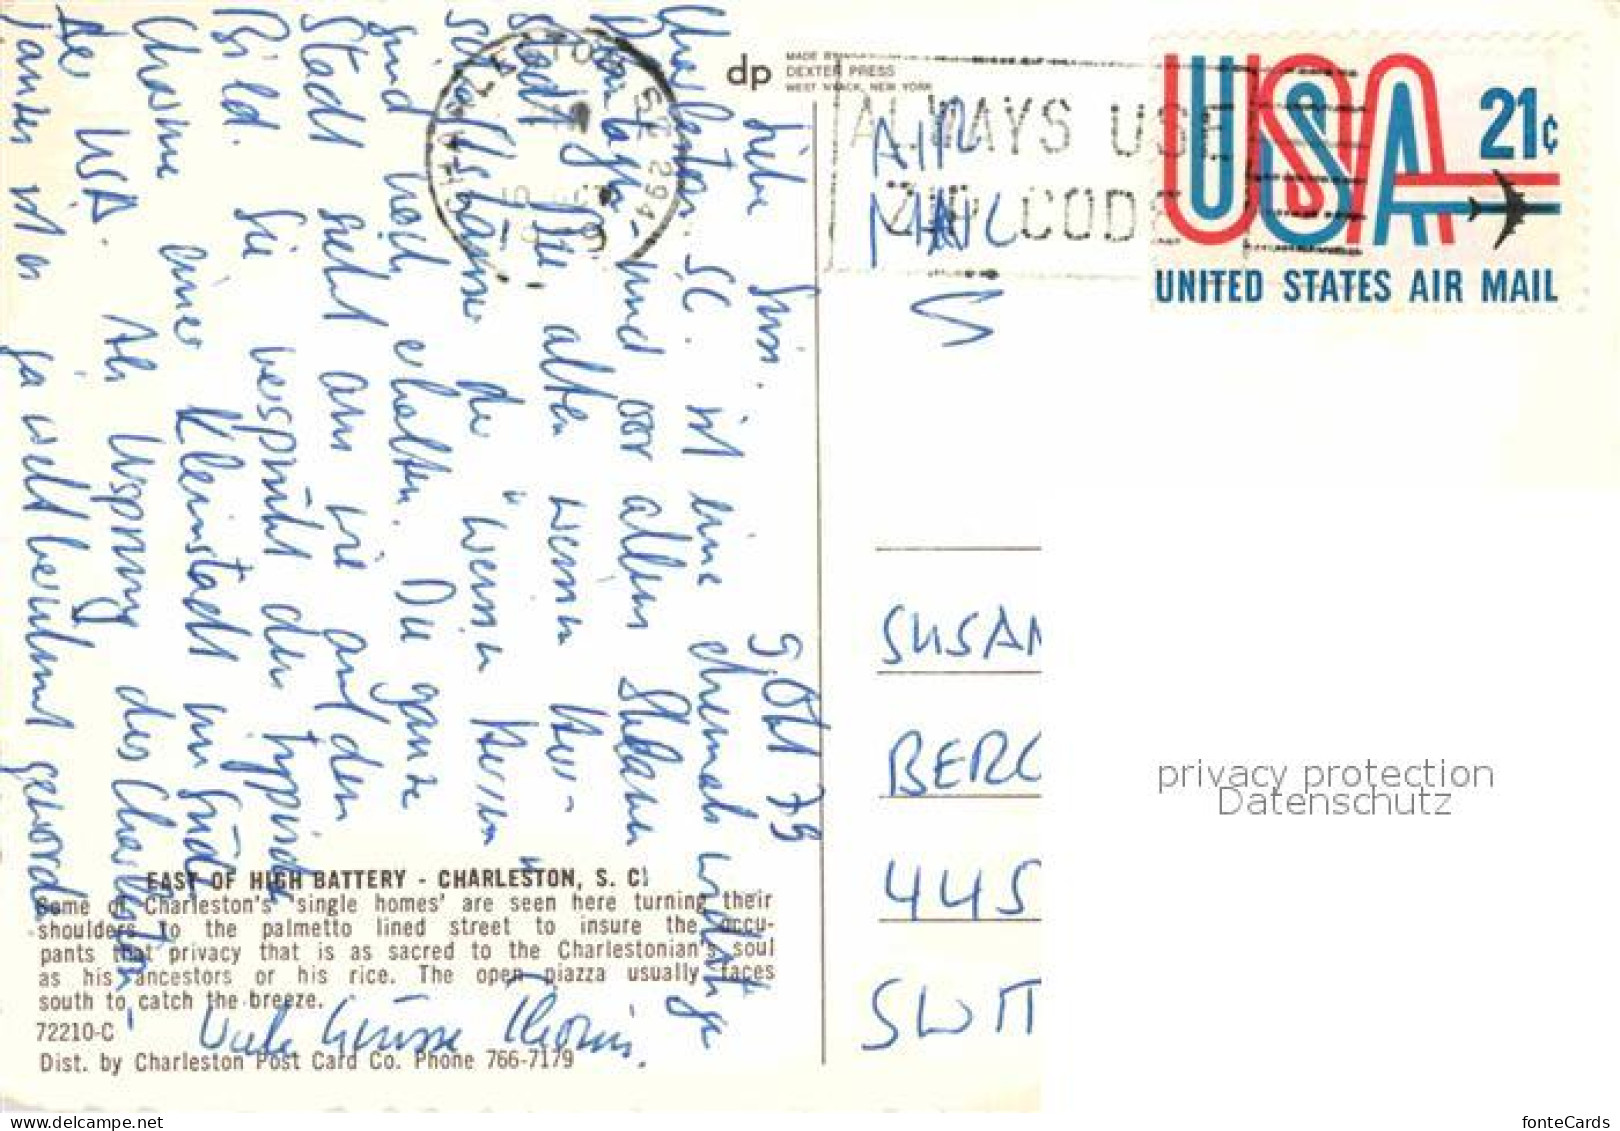 dp
MADE BY
DEXTER PRESS
WEST NYACK, NEW YORK
ALWAYS USE
ZIP CODE
SC 294
USA
21¢
UNITED STATES AIR MAIL
AIR
MAIL
9. Okt 79
Liebe Susi.
Charleston. SC. ist eine ehemals wichtige
und vor allem Sklaven
stadt. Die alten weissen Her-
schaftshäuser der "weissen Herren"
sind noch erhalten. Die ganze
Stadt sieht aus wie auf dem
Bild. Sie versprüht den typischen
Charme einer Kleinstadt im Süden
der USA. Als Ursprung des Charleston-
Tanzes ist er ja weltberühmt geworden
Viele Grüsse
EAST OF HIGH BATTERY - CHARLESTON, S. C.
Some of Charleston's 'single homes' are seen here turning their
shoulders to the palmetto lined street to insure the occu-
pants that privacy that is as sacred to the Charlestonian's soul
as his ancestors or his rice. The open piazza usually faces
south to catch the breeze.
72210-C
Dist. by Charleston Post Card Co. Phone 766-7179
SUSAN
BERG
445
SWIT
privacy protection
Datenschutz
fonteCards